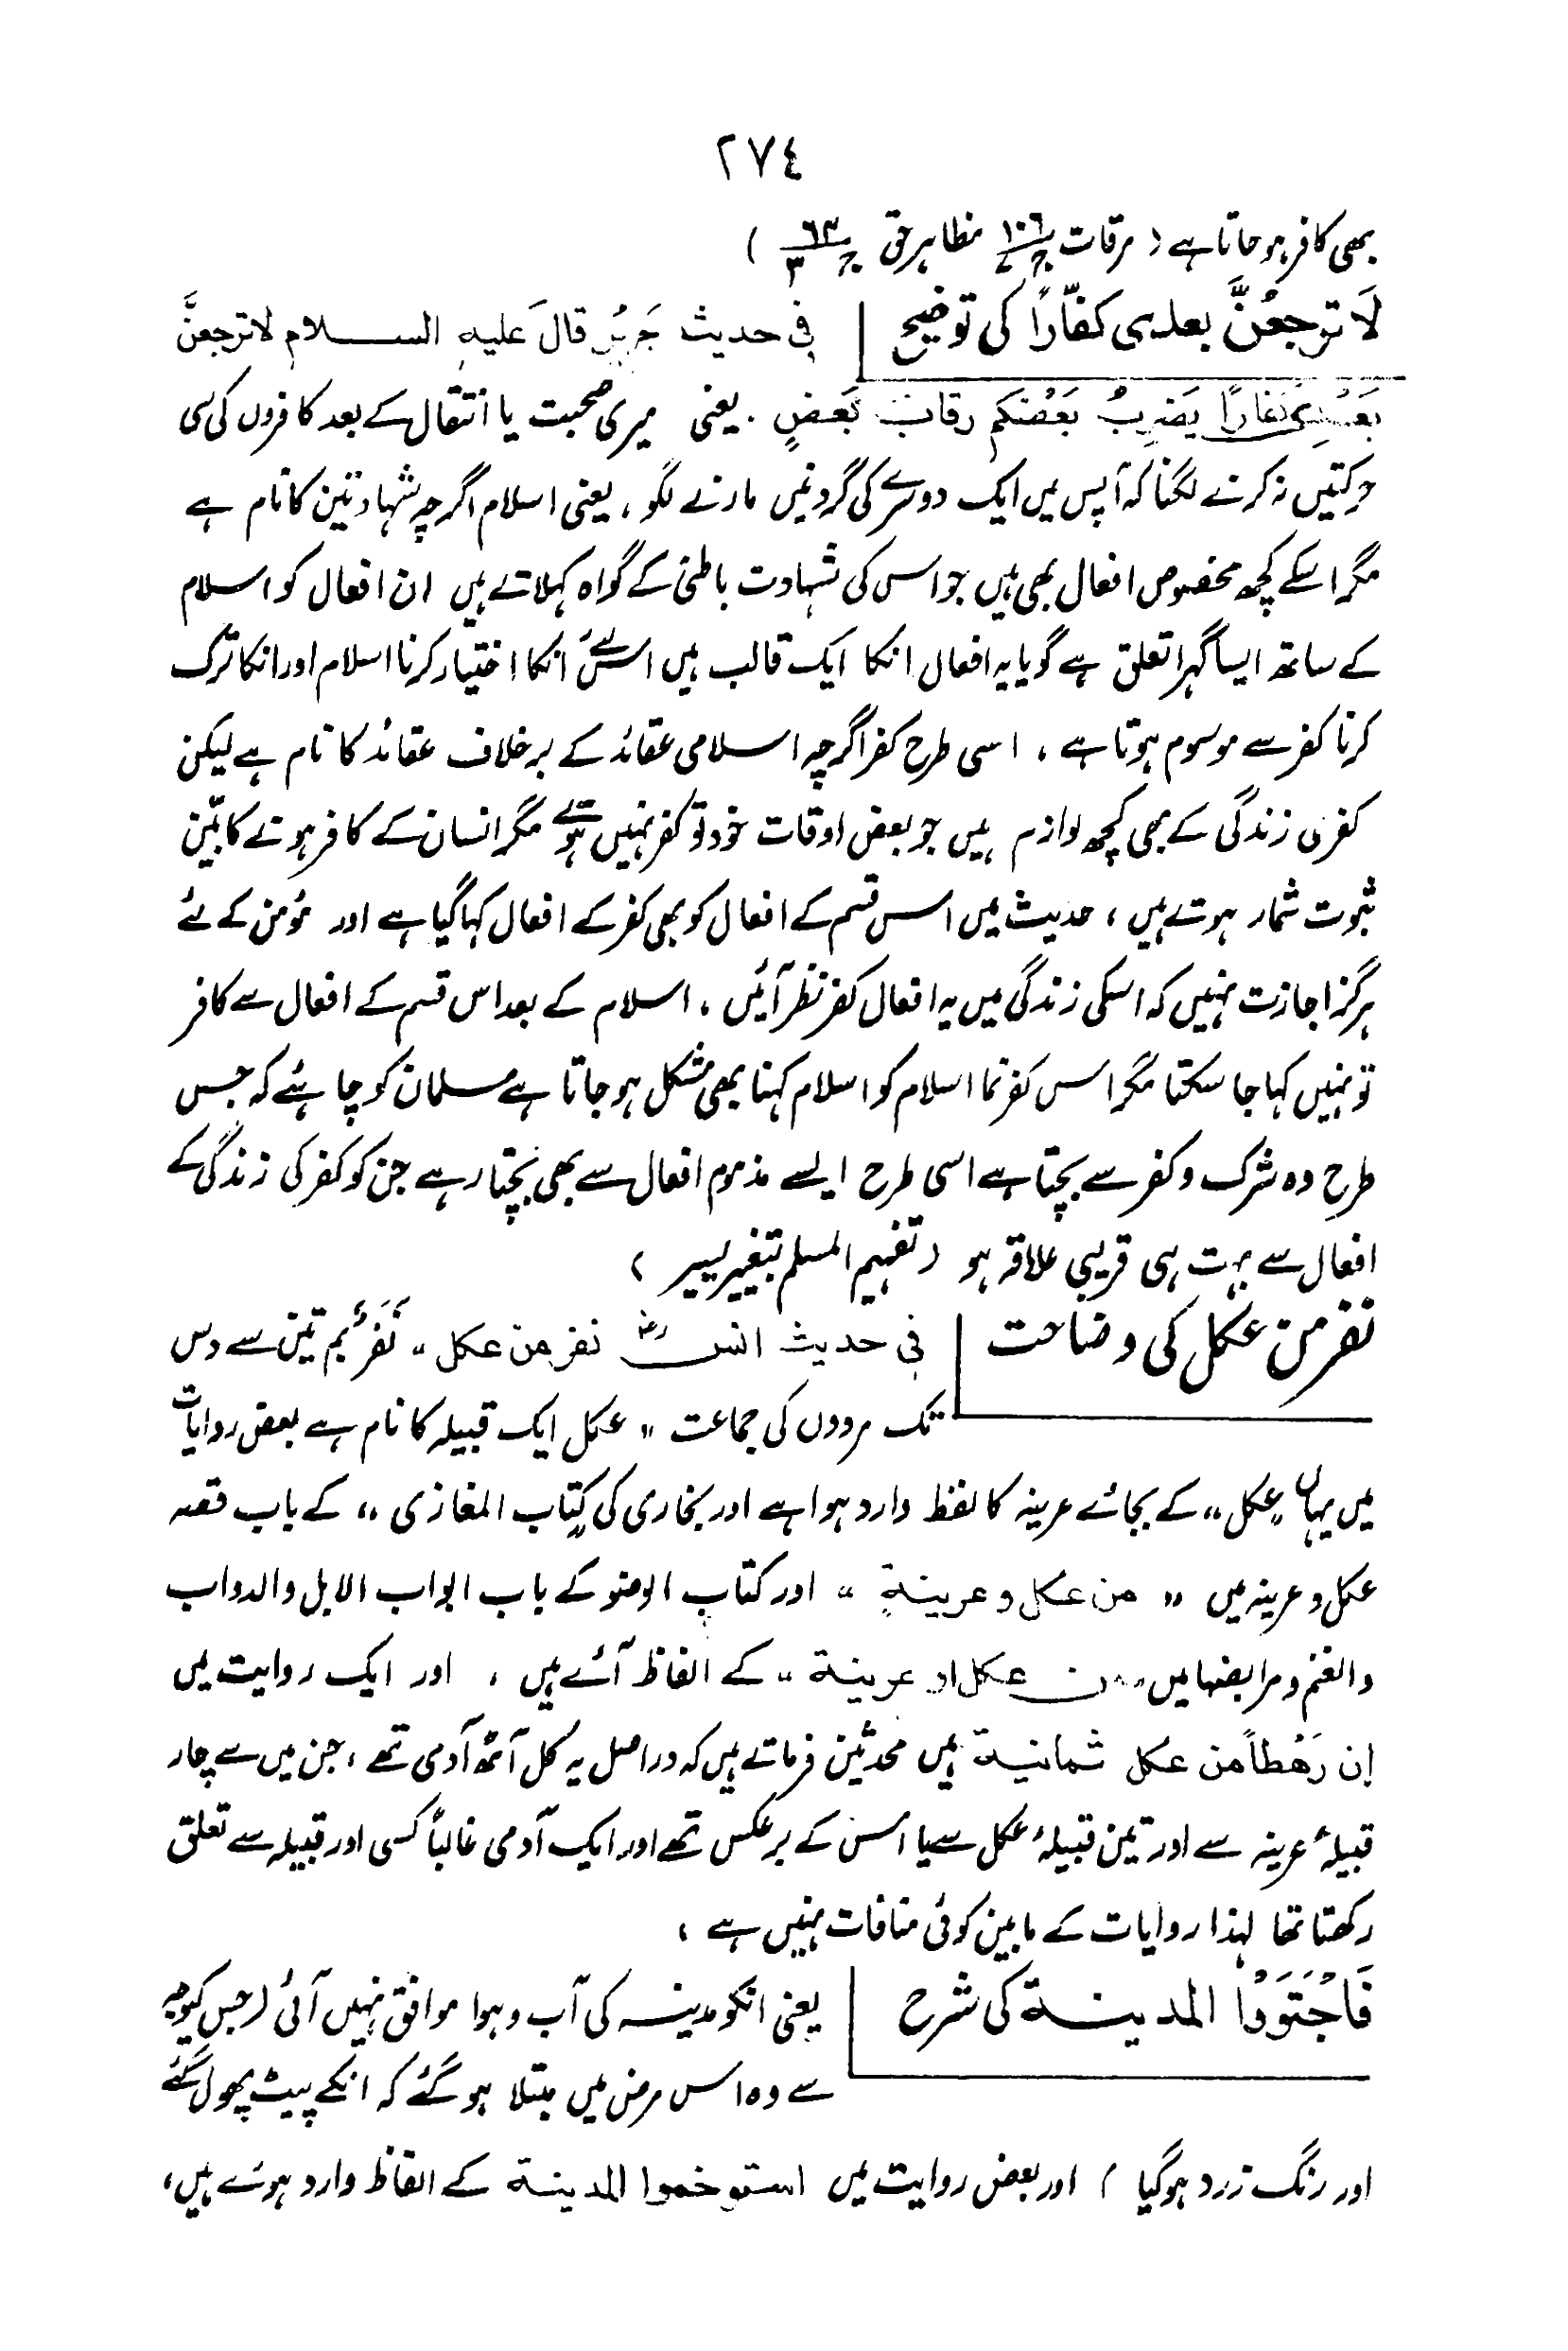 ٢٧٤
بھی کافر ہو جاتا ہے ( مرقات ج ١٠٦/٧ مظاہر حق ج ٦٣/٣ )
لَا ترجعُنَّ بعدی کفّارًا کی توضیح | فی حدیث جَرِیْرٍ قالَ علیہِ الســـلام لا ترجعنَّ
بَعْدِی کفارًا یَضرِبُ بَعْضُکم رقابَ بَعضٍ . یعنی میری صحبت یا انتقال کے بعد کافروں کی سی
حرکتیں نہ کرنے لگنا کہ آپس میں ایک دوسرے کی گردنیں مارنے لگو ، یعنی اسلام اگرچہ شہادتین کا نام ہے
مگر اسکے کچھ مخصوص افعال بھی ہیں جو اس کی شہادت باطنی کے گواہ کہلاتے ہیں ان افعال کو اسلام
کے ساتھ ایسا گہرا تعلق ہے گویا یہ افعال انکا ایک قالب ہیں اسلئے انکا اختیار کرنا اسلام اور انکا ترک
کرنا کفر سے موسوم ہوتا ہے ، اسی طرح کفر اگرچہ اسلامی عقائد کے برخلاف عقائد کا نام ہے لیکن
کفری زندگی کے بھی کچھ لوازم ہیں جو بعض اوقات خود تو کفر نہیں ہوتے مگر انسان کے کافر ہونے کا بیّن
ثبوت شمار ہوتے ہیں ، حدیث میں اس قسم کے افعال کو بھی کفر کے افعال کہا گیا ہے اور مؤمن کے لئے
ہرگز اجازت نہیں کہ اسکی زندگی میں یہ افعال کفر نظر آئیں ، اسلام کے بعد اس قسم کے افعال سے کافر
تو نہیں کہا جا سکتا مگر اس کفر نما اسلام کو اسلام کہنا بھی مشکل ہو جاتا ہے مسلمان کو چاہئے کہ جس
طرح وہ شرک و کفر سے بچتا ہے اسی طرح ایسے مذموم افعال سے بھی بچتا رہے جن کو کفر کی زندگی کے
افعال سے بہت ہی قریبی علاقہ ہو ( تفہیم المسلم بتغییر یسیر )
نفر من عکل کی وضاحت | فی حدیث انسؓ نفر من عکل „ نَفَرٌ بم تین سے دس
تک مردوں کی جماعت „ عکل ایک قبیلہ کا نام ہے بعض روایات
میں یہاں „عکل“ کے بجائے عرینہ کا لفظ وارد ہوا ہے اور بخاری کی کتاب المغازی “ کے باب قصہ
عکل و عرینہ میں „ من عکل و عرینةٍ “ اور کتاب الوضو کے باب ابواب الابل والدواب
والغنم و مرابضہا میں „من عکل او عرینة “ کے الفاظ آئے ہیں ، اور ایک روایت میں
اِن رَهْطاً من عکل ثمانیة ہیں محدثین فرماتے ہیں کہ دراصل یہ کل آٹھ آدمی تھے ، جن میں سے چار
قبیلۂ عرینہ سے اور تین قبیلۂ عکل سے یا اس کے برعکس تھے اور ایک آدمی غالباً کسی اور قبیلہ سے تعلق
رکھتا تھا لہذا روایات کے مابین کوئی منافات نہیں ہے ،
فَاجْتَوَوُا المدیــنــة کی شرح | یعنی انکو مدینہ کی آب و ہوا موافق نہیں آئی (جس کیوجہ
سے وہ اس مرض میں مبتلا ہو گئے کہ انکے پیٹ پھول گئے
اور رنگ زرد ہو گیا ) اور بعض روایت میں استوخموا المدینة کے الفاظ وارد ہوئے ہیں ،